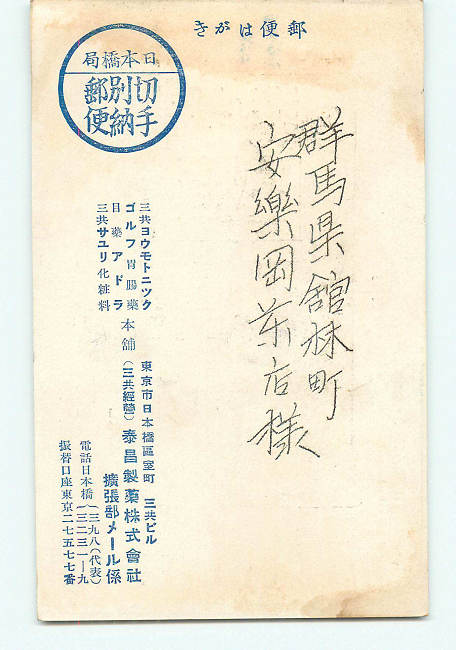 郵便はがき
日本橋局
切手
別納
郵便
群馬県舘林町
安樂岡店様
三共ヨウモトニツク
ゴルフ胃腸藥
目藥アドラ
三共サユリ化粧料
本舗
東京市日本橋區室町 三共ビル
(三共經營)泰昌製藥株式會社
擴張部メール係
電話日本橋
振替口座東京二七五七七番